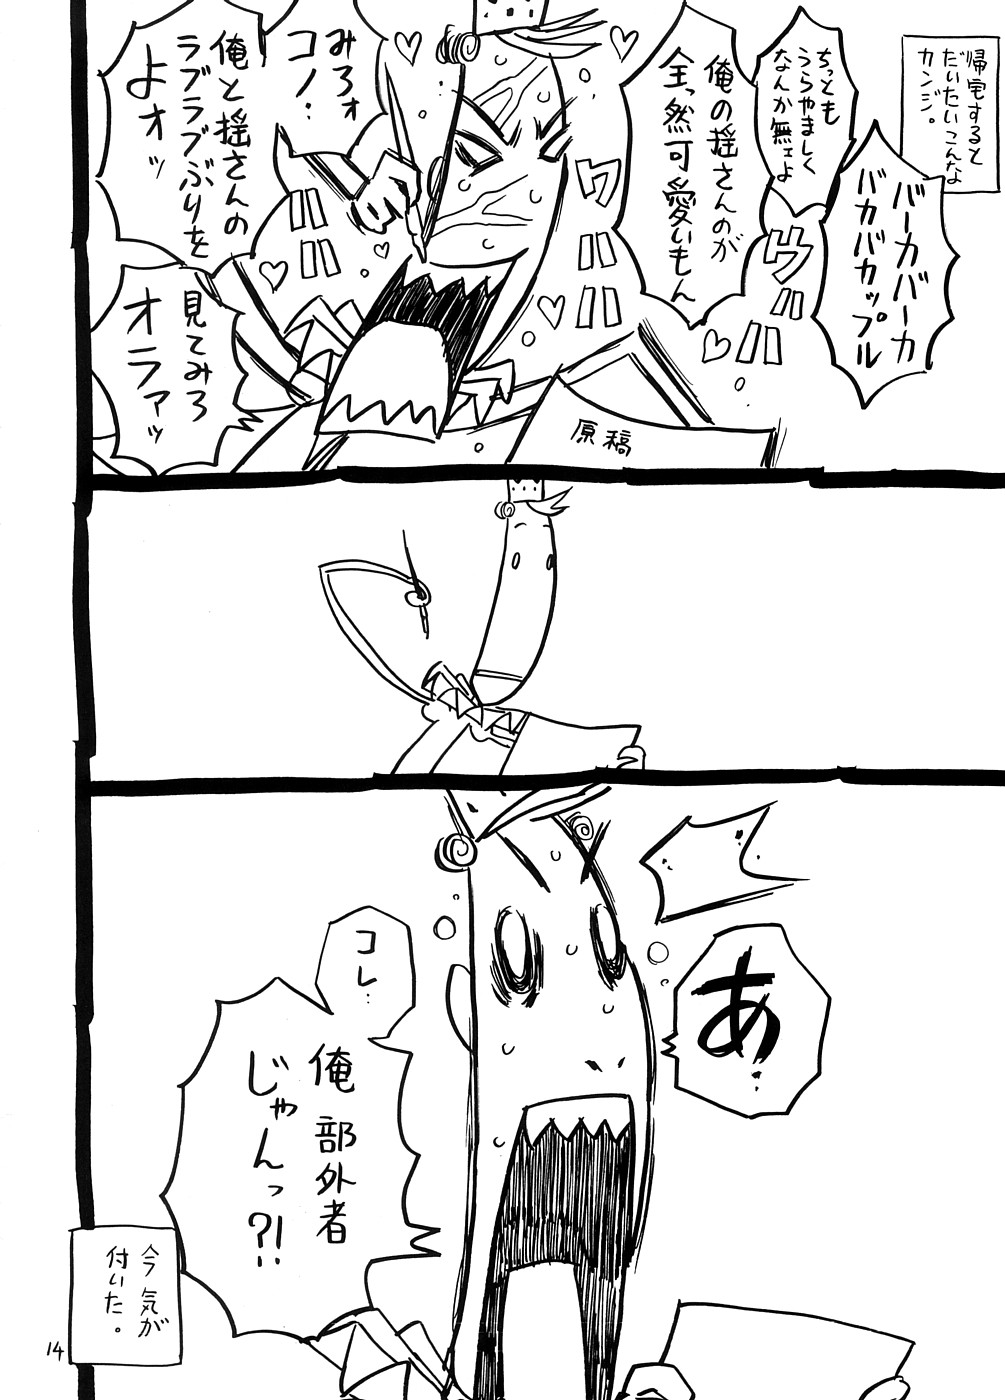 帰宅すると
だいたいこんな
カンジ。
バーカバーカ
バカバカップル
ちっとも
うらやましく
なんか無ェよ
ウハハ
俺の揺さんのが
全っ然可愛いもん
ワハハハ
みろォ
コノ…
ハハ
俺と揺さんの
ラブラブぶりを
よォッ
見てみろ
オラァッ
原稿
あ…
コレ…
俺部外者
じゃんっ?!
今気が
付いた。
14